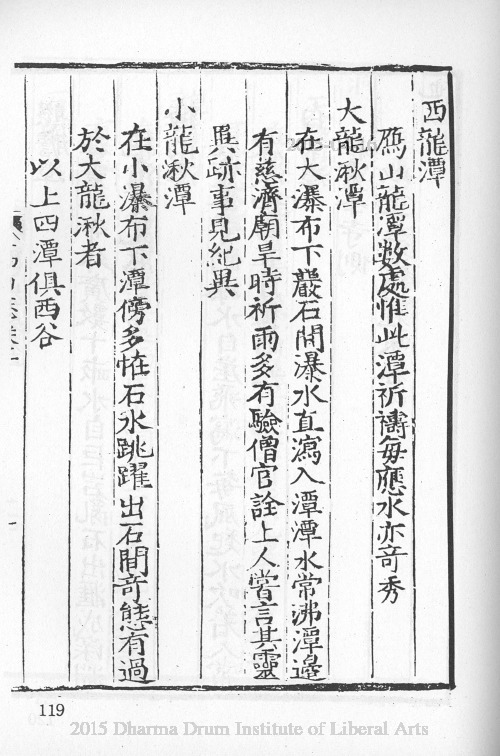 西龍潭
鴈山龍潭數處惟此潭祈禱每應水亦奇秀
大龍湫潭
在大瀑布下巖石間瀑水直瀉入潭潭水常沸潭邊
有慈濟廟旱時祈雨多有驗僧官詮上人嘗言其靈
異跡事見紀異
小龍湫潭
在小瀑布下潭傍多恠石水跳躍出石間奇態有過
於大龍湫者
以上四潭俱西谷
119
2015 Dharma Drum Institute of Liberal Arts